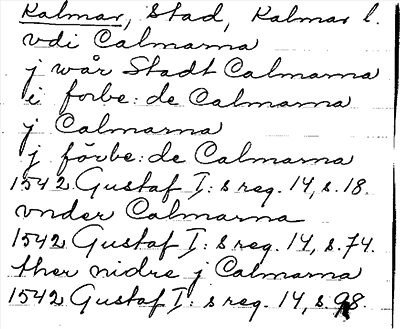 Kalmar, Stad, Kalmar l.
vdi Calmarna
j wår Stadt Calmarna
i forbe: de Calmarna
j Calmarna
j förbe: de Calmarna
1542 Gustaf I: s reg. 14, s. 18.
vnder Calmarna
1542 Gustaf I: s reg. 14, s. 74.
ther nidre j Calmarna
1542 Gustaf I: s reg. 14, s. 98.